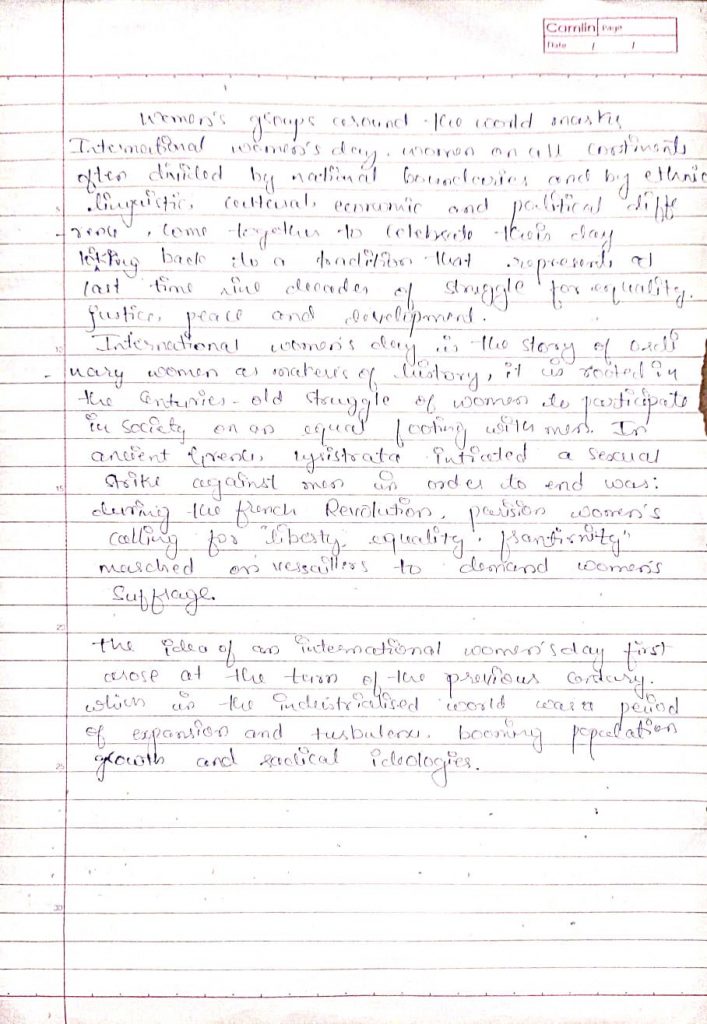 Camlin Page
Date / /
women's groups around the world marks
International women's day. women on all continents
often divided by national boundaries and by ethnic
linguistic, cultural, economic and political diffe
rence, come together to celebrate their day
looking back to a tradition that represents at
last time nine decades of struggle for equality.
justice, peace and development.
International women's day is the story of ordi
nary women as makers of history, it is rooted in
the centuries-old struggle of women to participate
in society on an equal footing with men. In
ancient Greece, lysistrata intiated a sexual
strike against men in order to end was:
during the french Revolution, parision women's
calling for "liberty, equality, frantirnity"
marched on versaillers to demand women's
suffrage.
the idea of an international women's day first
arose at the turn of the previous century.
which in the industrialised world was a period
of expansion and turbulence, booming population
growth and radical ideologies.